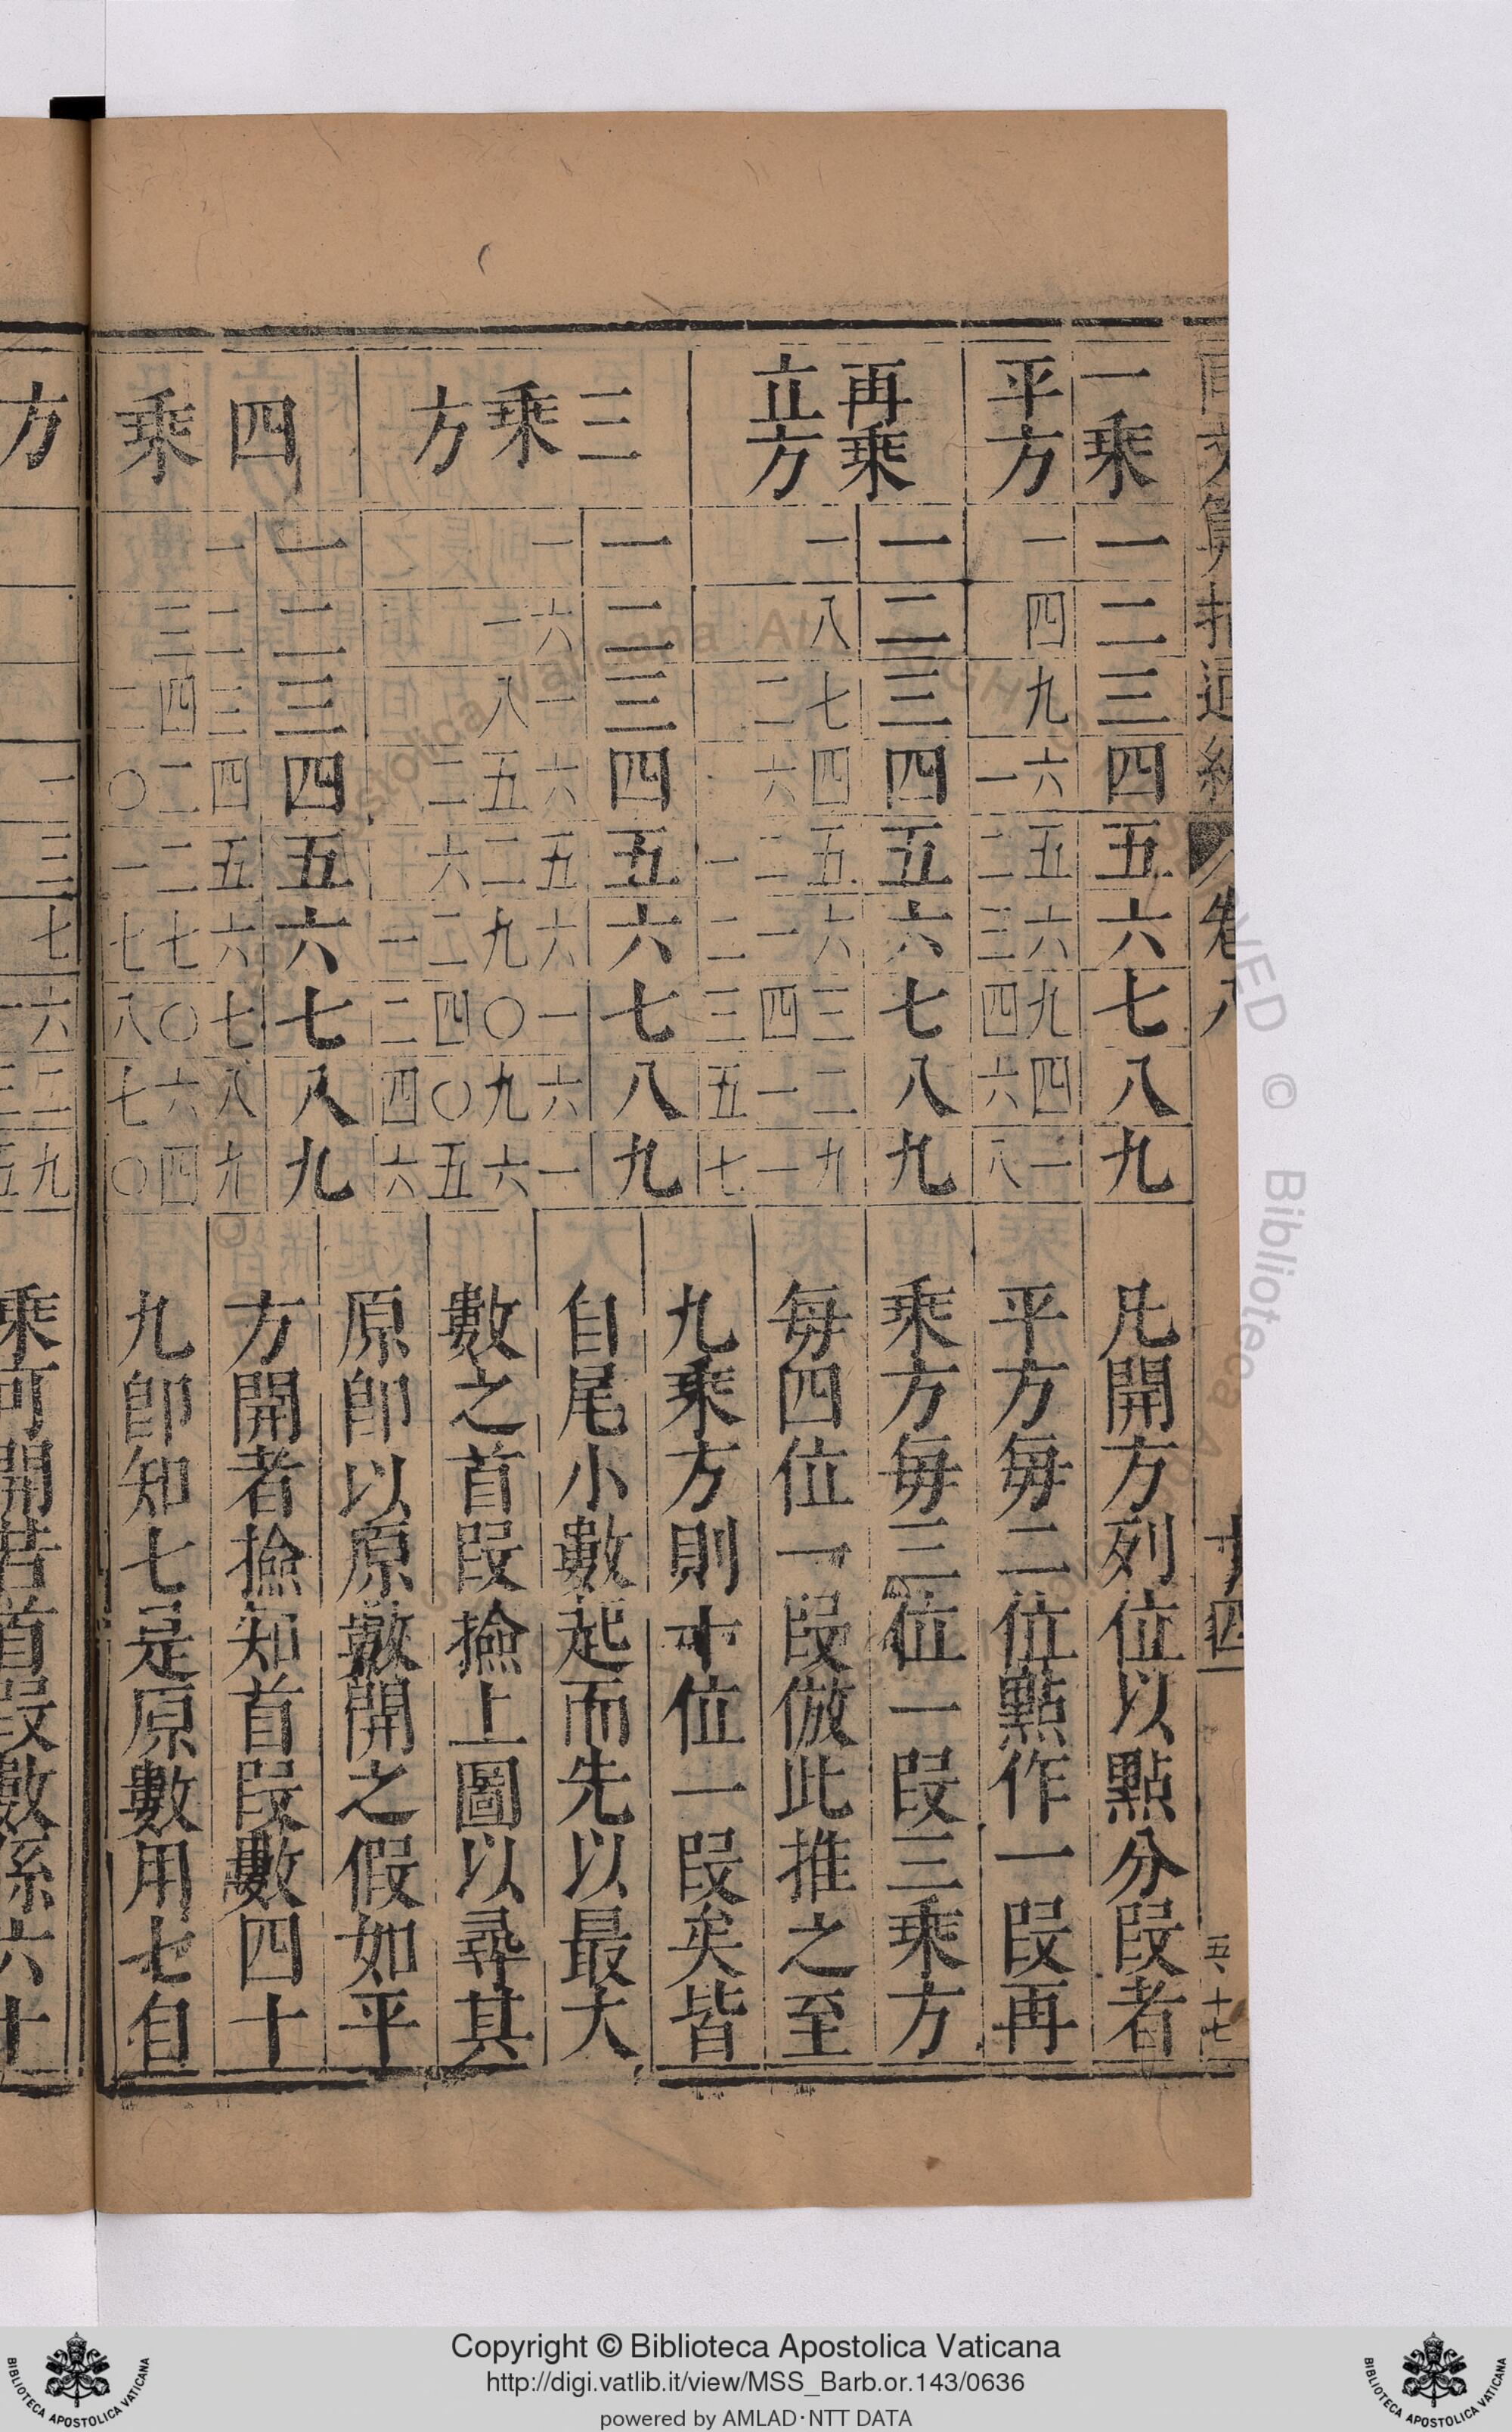 一乘
一二三四五六七八九
平方
一四九六五六九四一
一二三四六八
再乘
一二三四五六七八九
立方
一八七四五六三二九
二六二一四一一
一二三五七
三
一二三四五六七八九
乘
一六一六五六一六一
一八五二九〇九六
方
二六二四〇五
一二四六
四
一二三四五六七八九
乘
一二三四五六七八九
三四二二七〇六四
二〇一七八七〇
凡開方列位以點分段者
平方每二位點作一段再
乘方每三位一段三乘方
每四位一段倣此推之至
九乘方則十位一段矣皆
自尾小數起而先以最大
數之首段撿上圖以尋其
原卽以原數開之假如平
方開者撿知首段數四十
九卽知七是原數用七自
方
一三七六二九
乘可開若首段數係六十
五十七
Copyright © Biblioteca Apostolica Vaticana
http://digi.vatlib.it/view/MSS_Barb.or.143/0636
powered by AMLAD·NTT DATA
BIBLIOTECA APOSTOLICA VATICANA
BIBLIOTECA APOSTOLICA VATICANA